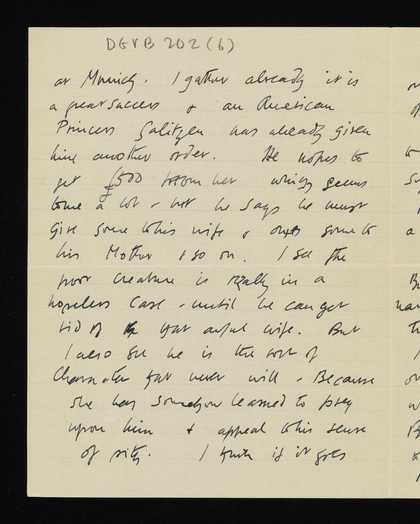 DGVB 202 (6)
at Munich. I gather already it is
a great success & an American
Princess Galitzen has already given
him another order. He hopes to
get £500 from her which seems
to me a lot – but he says he must
give some to his wife & some to
his Mother & so on. I see the
poor creature is really in a
hopeless case – until he can get
rid of that awful wife. But
I also see he is the sort of
character that never will – Because
she has somehow learned to prey
upon him & appeal to his sense
of pity. I think if it goes